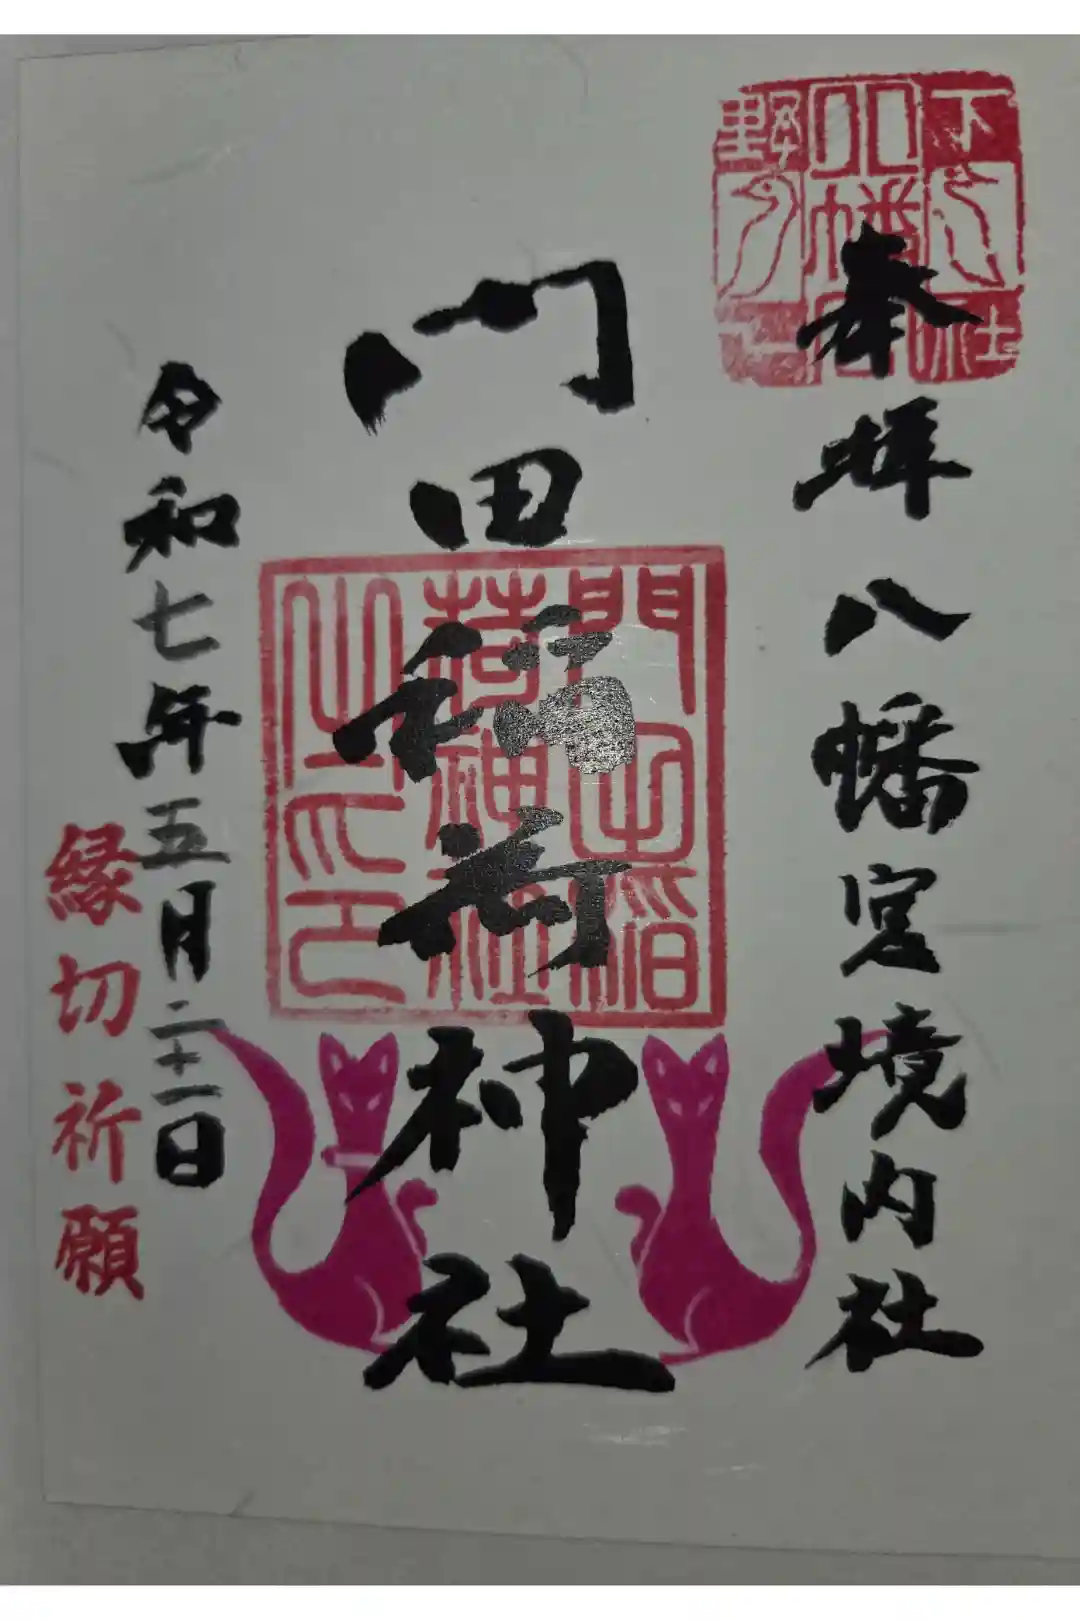 奉拝八幡宮境内社
門田稲荷神社
令和七年五月二十一日
縁切祈願
門田稲
荷神社
之印